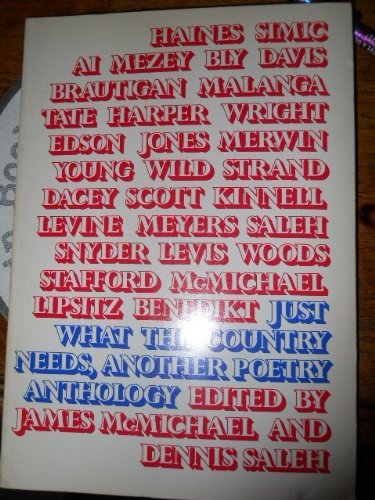 HAINES SIMIC
AI MEZEY BLY DAVIS
BRAUTIGAN MALANGA
TATE HARPER WRIGHT
EDSON JONES MERWIN
YOUNG WILD STRAND
DACEY SCOTT KINNELL
LEVINE MEYERS SALEH
SNYDER LEVIS WOODS
STAFFORD McMICHAEL
LIPSITZ BENEDIKT JUST
WHAT THE COUNTRY
NEEDS, ANOTHER POETRY
ANTHOLOGY EDITED BY
JAMES McMICHAEL AND
DENNIS SALEH